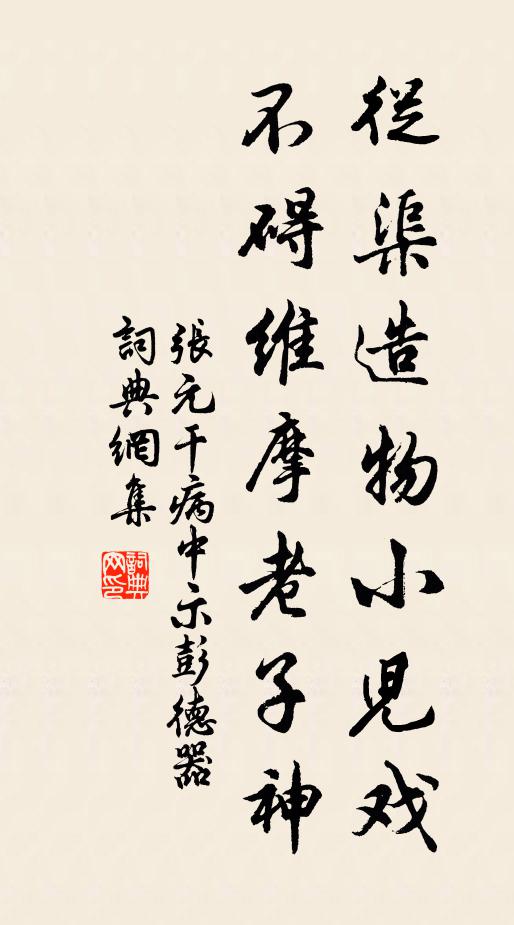 從渠造物小児戏
不碍維摩老子神
張元干病中示彭德器
詞典網集
詞典网印